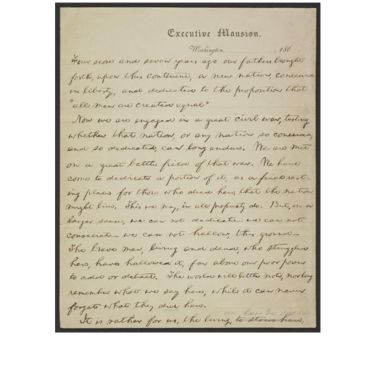 Executive Mansion,
Washington, 186
Four score and seven years ago our fathers brought
forth, upon this continent, a new nation, conceived
in liberty, and dedicated to the proposition that
"all men are created equal"
Now we are engaged in a great civil war, testing
whether that nation, or any nation so conceived,
and so dedicated, can long endure. We are met
on a great battle field of that war. We have
come to dedicate a portion of it, as a final rest-
ing place for those who died here, that the nation
might live. This we may, in all propriety do. But, in a
larger sense, we can not dedicate we can not
consecrate we can not hallow, this ground
The brave men, living and dead, who struggled
here, have hallowed it, far above our poor power
to add or detract. The world will little note, nor long
remember what we say here; while it can never
forget what they did here.
It is rather for us, the living, to stand here